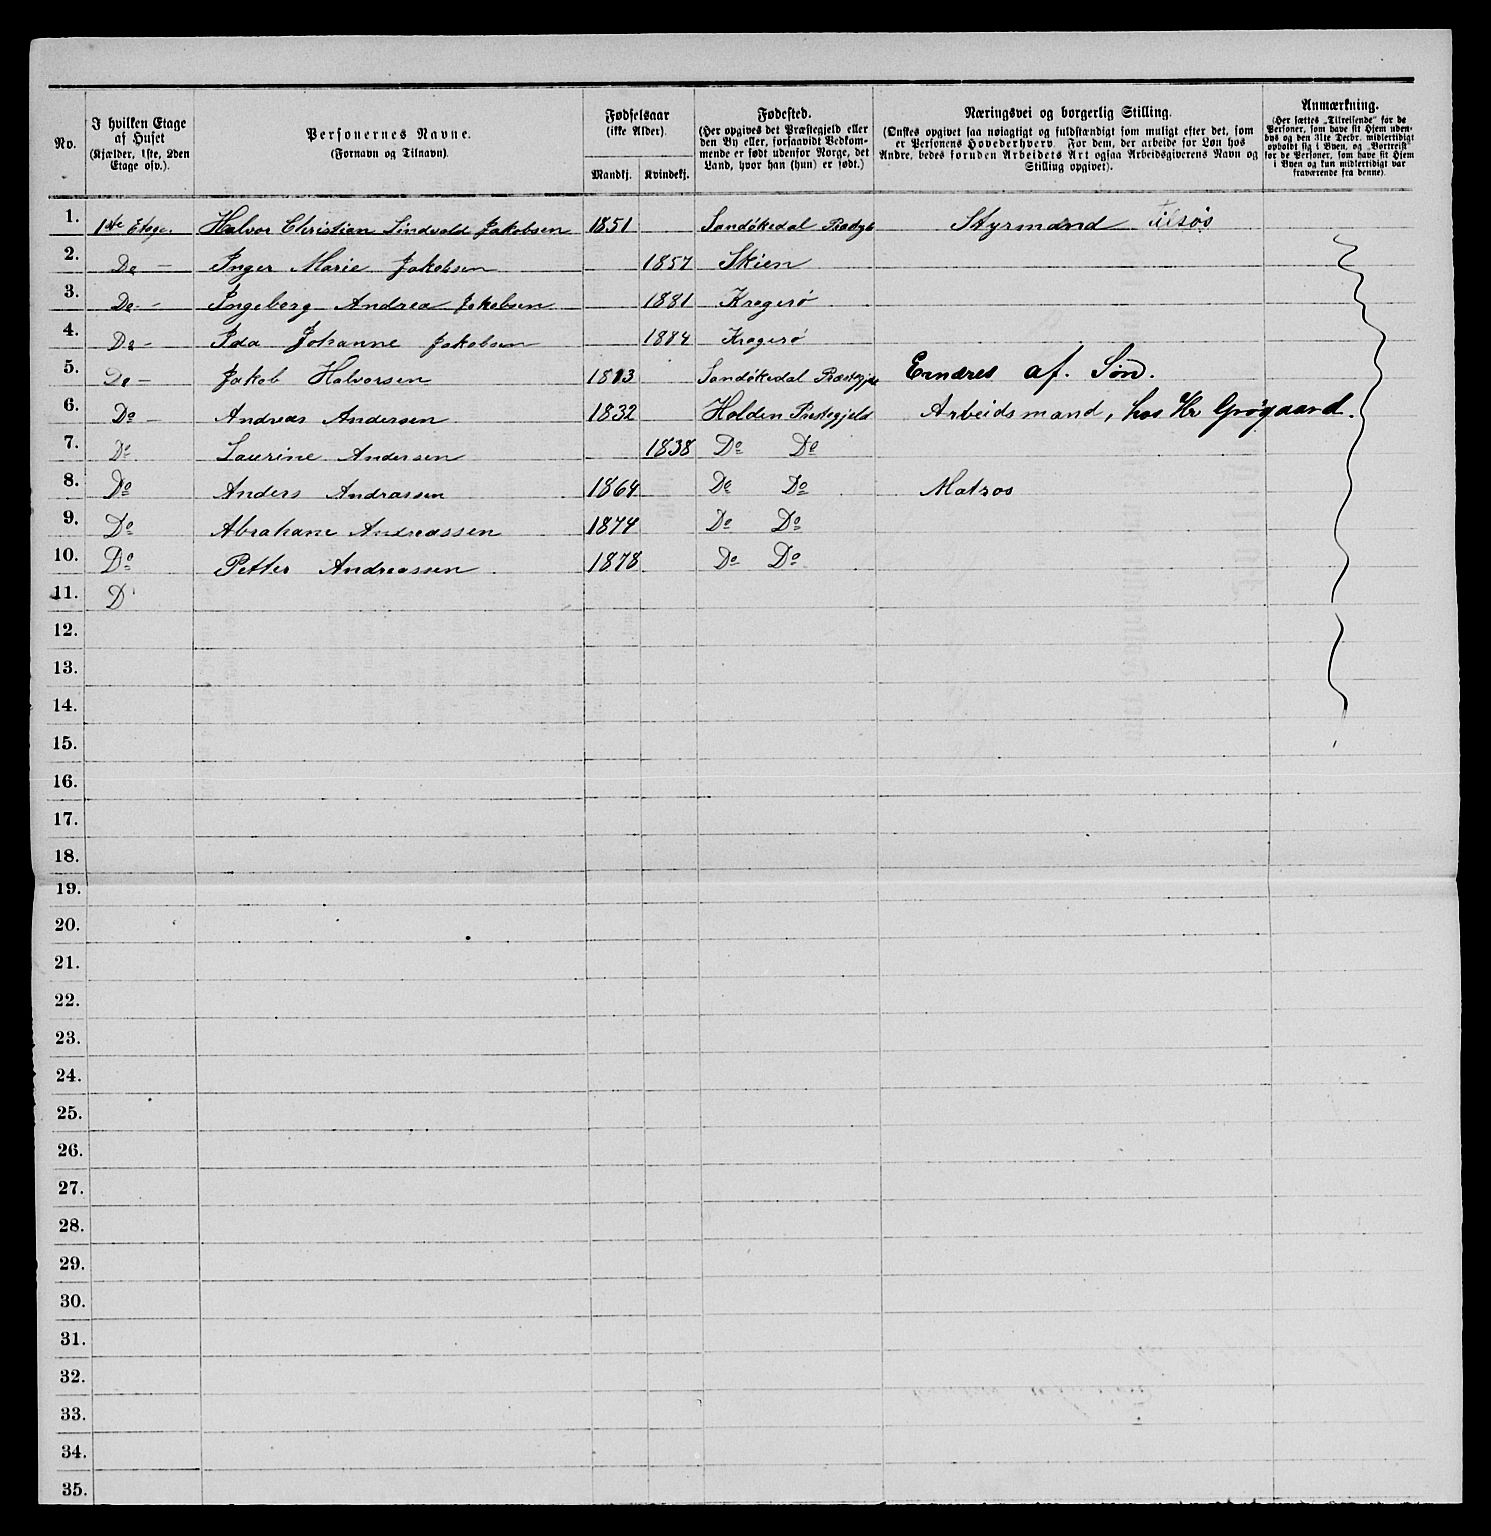 No.
I hvilken Etage af Huset (Kjælder, 1ste, 2den Etage osv.).
Personernes Navne. (Fornavn og Tilnavn).
Fødselsaar (ikke Alder). Mandkj. Kvindekj.
Fødested. (Her opgives det Præstegjeld eller den By eller, forsaavidt Vedkommende er født udenfor Norge, det Land, hvor han (hun) er født.)
Næringsvei og borgerlig Stilling. (Ønskes opgivet saa nøiagtigt og fuldstændigt som muligt efter det, som er Personens Hovederhverv. For dem, der arbeide for Løn hos Andre, bedes foruden Arbeidets Art ogsaa Arbeidsgiverens Navn og Stilling opgivet).
Anmærkning. (Her sættes „Tilreisende" for de Personer, som have sit Hjem udenbys og den 31te Decbr. midlertidigt opholdt sig i Byen, og „Bortreist" for de Personer, som have sit Hjem i Byen og kun midlertidigt var fraværende fra denne).
1. 1ste Etage. Halvor Christian Lindvald Jakobsen 1851 Sandökedal Styrmand tilsøs
2. Do — Inger Marie Jakobsen 1857 Skien
3. Do - Ingeborg Andrea Jakobsen 1881 Kragerö
4. Do - Ida Johanne Jakobsen 1884 Kragerö
5. Do — Jakob Halvorsen 1813 Sandökedal Ernæres af. Søn.
6. Do — Andreas Andersen 1832 Holden Arbeidsmand, hos Hr Grøgaard.
7. Do Laurine Andersen 1838 Do Do
8. Do Anders Andrassen 1864 Do Do Matros
9. Do Abraham Andreassen 1874 Do Do
10. Do Petter Andreassen 1878 Do Do
11. D
12.
13.
14.
15.
16.
17.
18.
19.
20.
21.
22.
23.
24.
25.
26.
27.
28.
29.
30.
31.
32.
33.
34.
35.